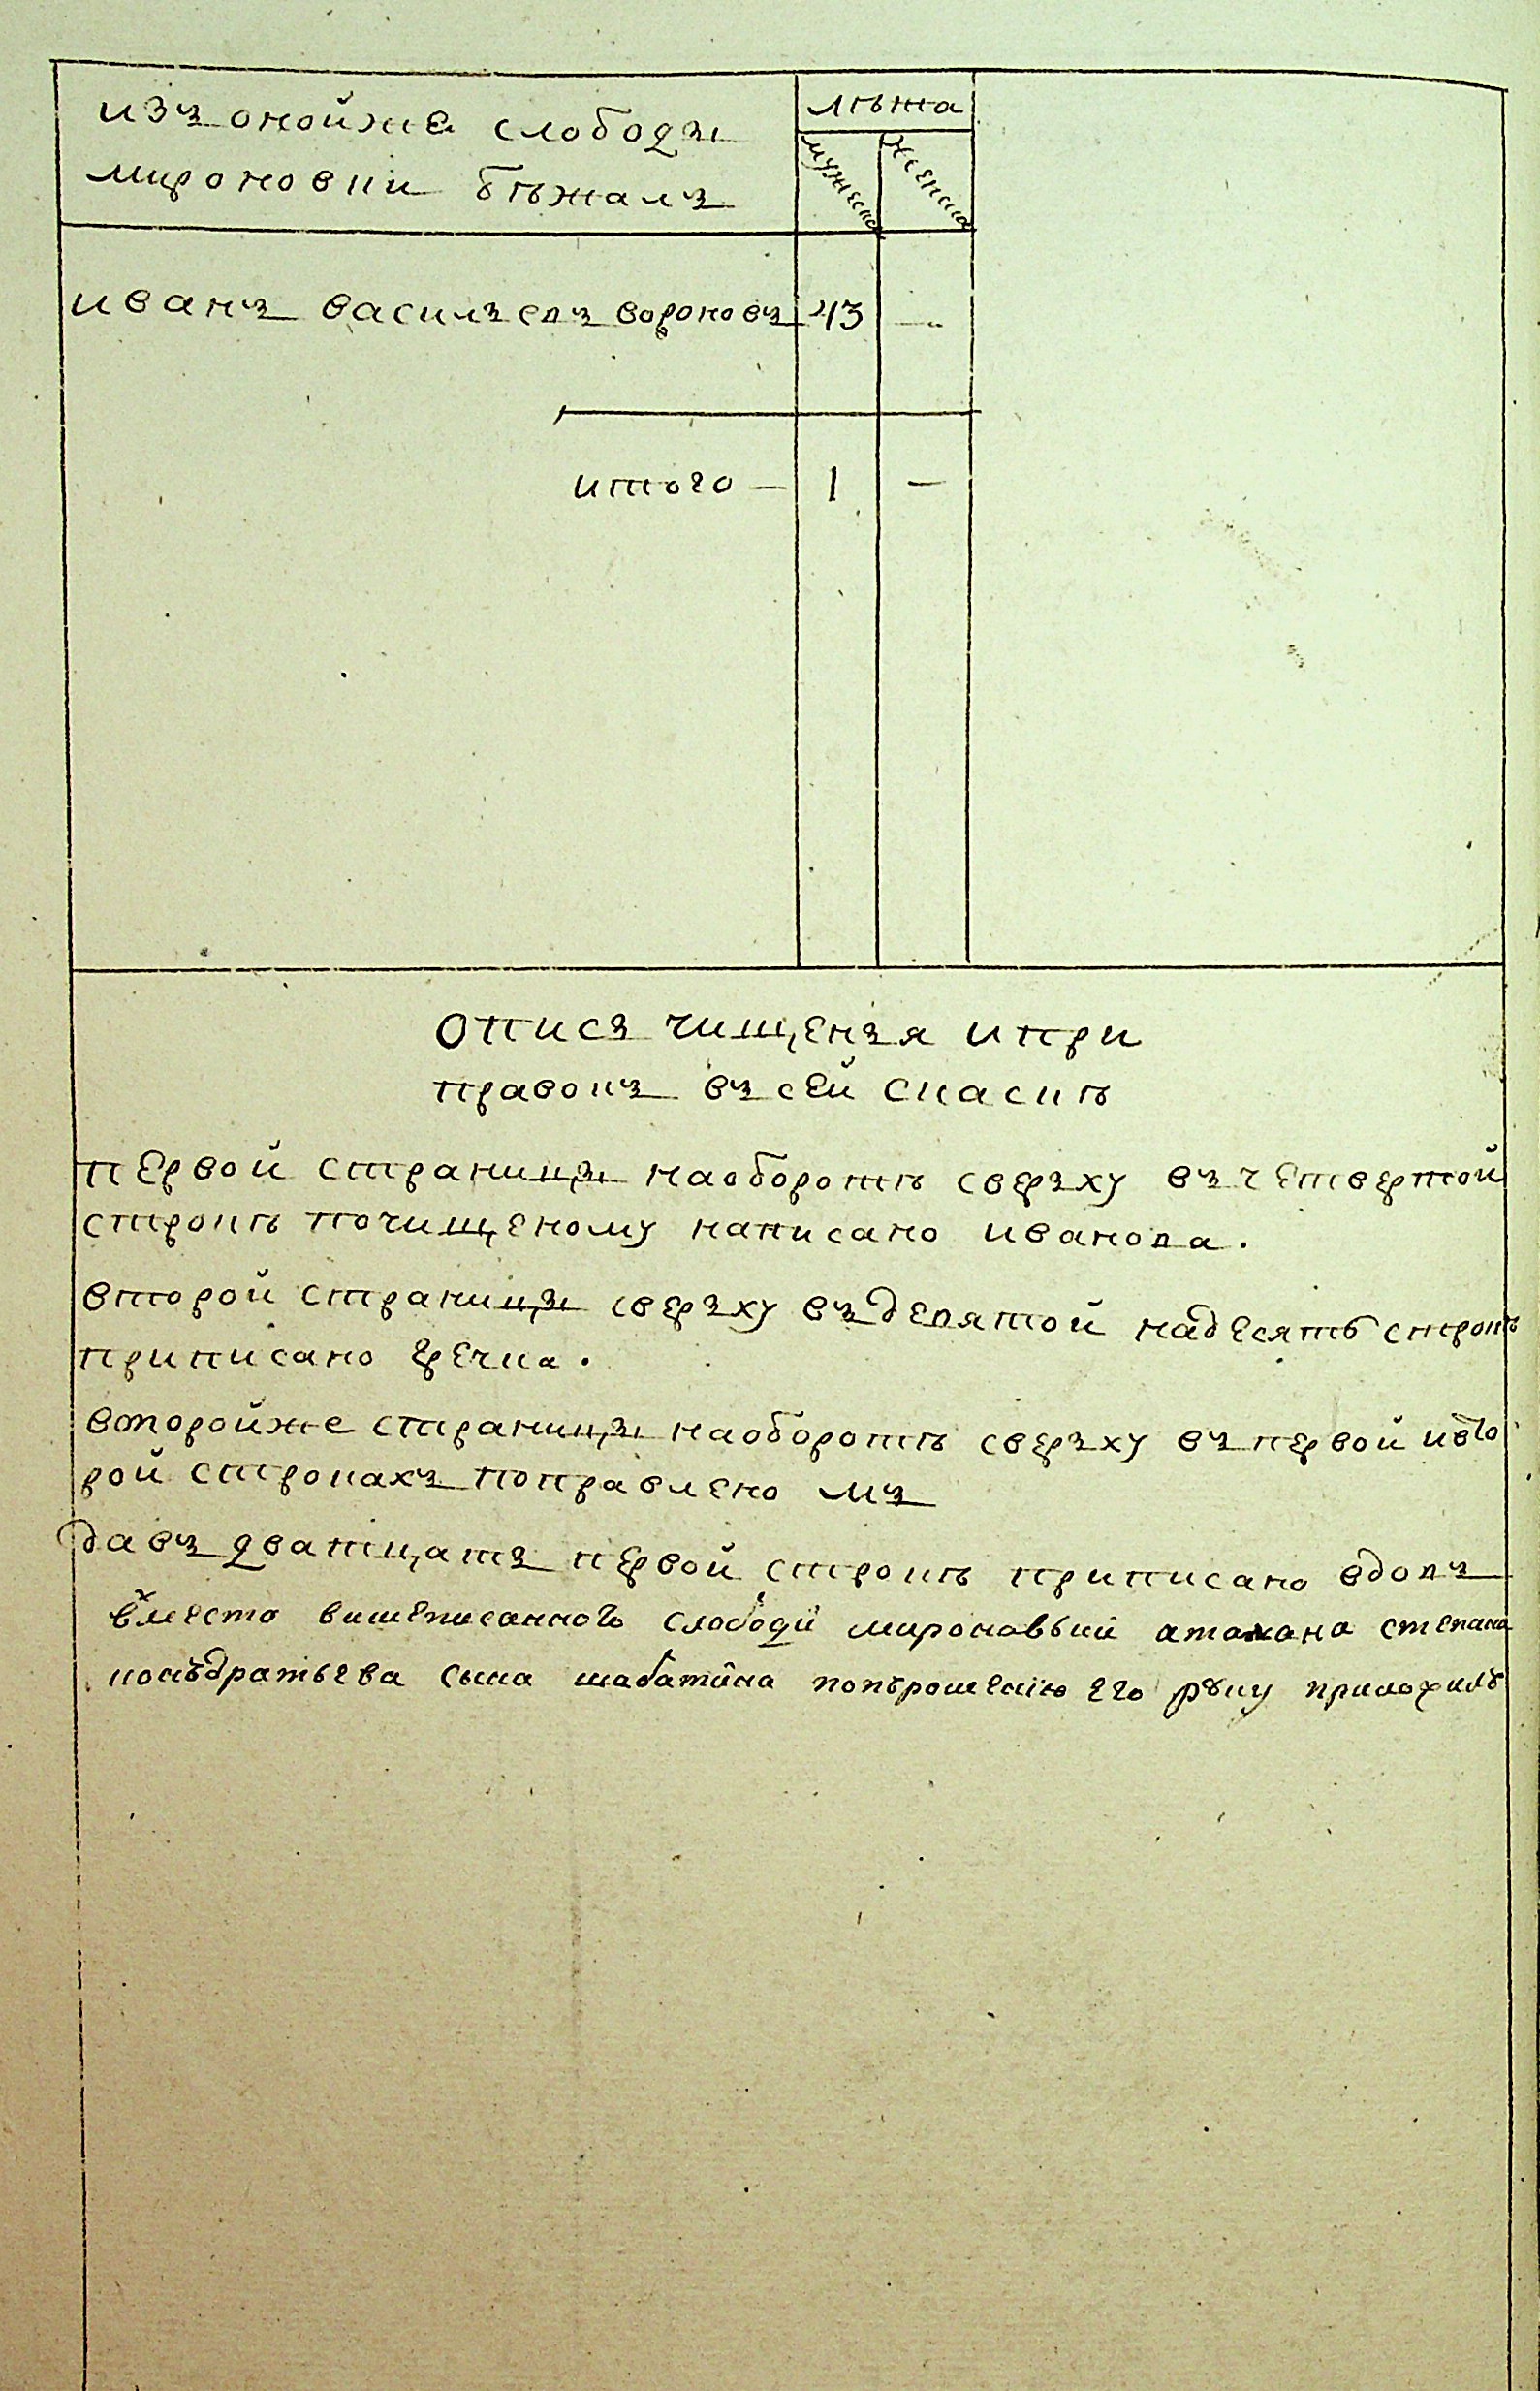 изъ онойже слободы
мироновки бѣжалъ
лѣта
мужеска
женска
иванъ васильевъ вороновъ 43 —
итого — 1 —
опись чищенья ипри
правокъ въ сей скаскѣ
первой страницы наоборотѣ сверьху въ четвертой
строкѣ почищеному написано иванова.
второй страницы сверьху въ девятой надесять строкѣ
приписано гречка.
второйже страницы наоборотѣ сверьху въ первой иvто
рой строкахъ поправлено мъ
давъ дватцать первой строкѣ приписано вдовъ
вместо вишеписанного слободи мироновьки атамана степана
конъдратьева сына шабатина попърошению его руку приложилъ